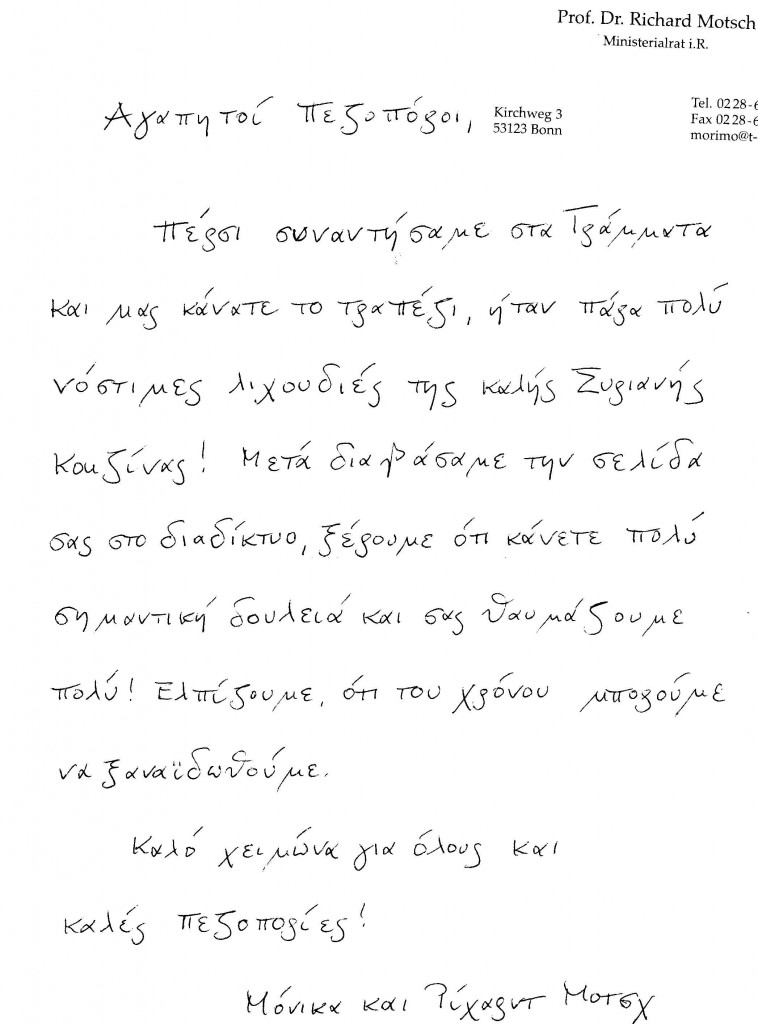 Prof. Dr. Richard Motsch
Ministerialrat i.R.
Αγαπητοί πεζοπόροι,
Kirchweg 3
53123 Bonn
Tel. 0228-6
Fax 0228-6
morimo@t-
Πέρσι συναντήσαμε στα Γράμματα
και μας κάνατε το τραπέζι, ήταν πάρα πολύ
νόστιμες λιχουδιές της καλής Συριανής
Κουζίνας! Μετά διαβάσαμε την σελίδα
σας στο διαδίκτυο, ξέρουμε ότι κάνετε πολύ
σημαντική δουλειά και σας θαυμάζουμε
πολύ! Ελπίζουμε, ότι του χρόνου μπορούμε
να ξαναϊδωθούμε.
Καλό χειμώνα για όλους και
καλές πεζοπορίες!
Μόνικα και Ρίχαρντ Μοτσχ